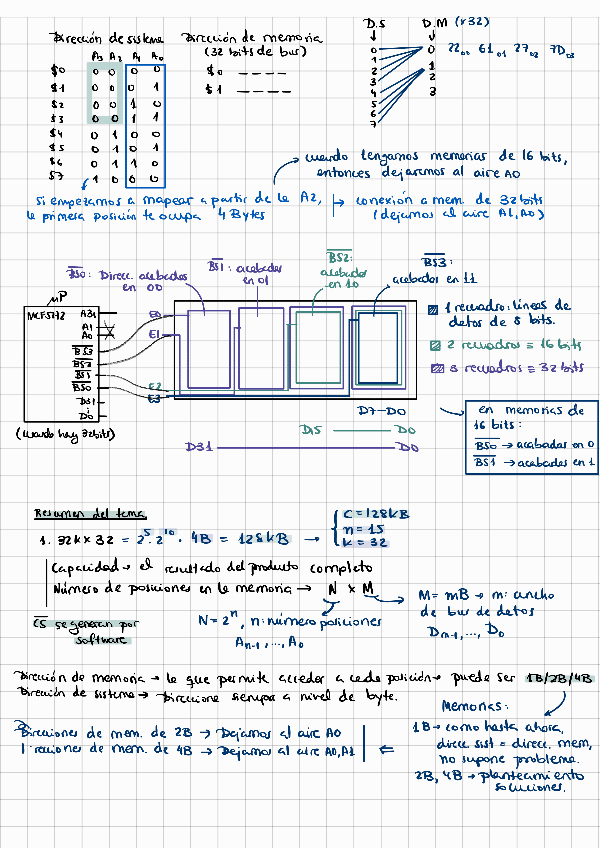 Dirección de sistema
A3 A2 A1 A0
$0 0 0 0 0
$1 0 0 0 1
$2 0 0 1 0
$3 0 0 1 1
$4 0 1 0 0
$5 0 1 0 1
$6 0 1 1 0
$7 1 0 0 0
Dirección de memoria
(32 bits de bus)
$0 _ _ _ _
$1 _ _ _ _
D.S D.M (x32)
0 0 22₀₀ 61₀₁ 27₀₂ 7D₀₃
1 1
2 2
3 3
4
5
6
7
cuando tengamos memorias de 16 bits,
entonces dejaremos al aire A0
Si empezamos a mapear a partir de la A2,
la primera posición te ocupa 4 Bytes
conexión a mem. de 32 bits
(dejamos al aire A1, A0)
BS0: Direcc. acabadas
en 00
BS1: acabadas
en 01
BS2:
acabadas
en 10
BS3:
acabadas en 11
μP
MCF5272
A31
A1
A0
BS3
BS2
BS1
BS0
D31
D0
(cuando hay 32bits)
E0
E1
E2
E3
D7-D0
D15 D0
D31 D0
1 recuadro: líneas de
datos de 8 bits.
2 recuadros ≡ 16 bits
3 recuadros ≡ 32 bits
en memorias de
16 bits:
BS0 → acabadas en 0
BS1 → acabadas en 1
Resumen del tema
1. 32k x 32 = 2⁵ · 2¹⁰ · 4B = 128kB →
C = 128kB
n = 15
k = 32
Capacidad → el resultado del producto completo
Número de posiciones en la memoria → N x M
CS se generan por
software
N = 2ⁿ, n: número posiciones
An-1, ..., A0
M = mB → m: ancho
de bus de datos
Dm-1, ..., D0
Dirección de memoria → la que permite acceder a cada posición → puede ser 1B/2B/4B
Dirección de sistema → Direcciona siempre a nivel de byte.
Memorias:
1B → como hasta ahora,
direcc sist = direcc. mem,
no supone problema.
2B, 4B → planteamiento
soluciones.
Direcciones de mem. de 2B → Dejamos al aire A0
Direcciones de mem. de 4B → Dejamos al aire A0, A1 ⇐